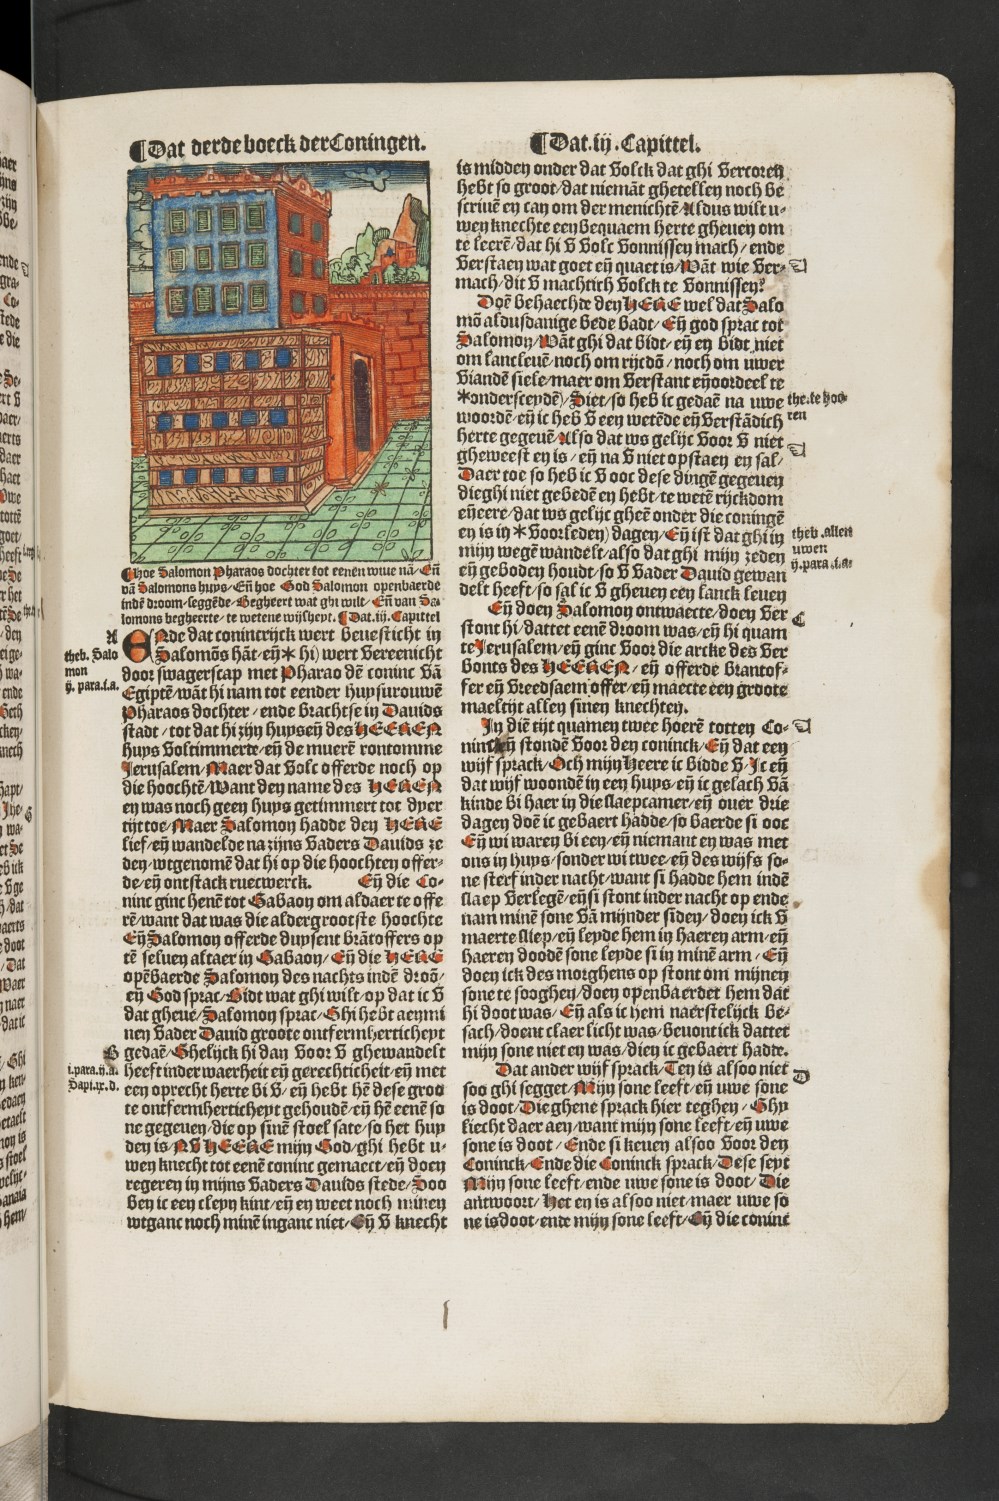 ¶Dat derde boeck der Coningen.
¶Hoe Salomon Pharaos dochter tot eenen wiue nā/ Eñ
vā Salomons huys/ Eñ hoe God Salomon openbaerde
indē droom/seggēde/Begheert wat ghi wilt/ Eñ van Sa-
lomons begheerte/ te wetene wijsheyt. ¶Dat.iij. Capittel
A
ENde dat conincrijck wert beuesticht in
Salomōs hāt/eñ✶ hi) wert vereenicht
theb. Salo
mon
ij. para.i.a.
door swagerscap met Pharao dē coninc vā
Egiptē/wāt hi nam tot eender huysurouwē
Pharaos dochter/ ende brachtse in Dauids
stadt/tot dat hi zijn huyseñ des HEEREN
huys voltimmerde/eñ de muerē rontomme
Jerusalem/Maer dat volc offerde noch op
die hoochtē/Want den name des HEREN
en was noch geen huys getimmert tot dyer
tijt toe/Maer Salomon hadde den HERE
lief/eñ wandelde na zijns vaders Dauids ze
den/wtgenomē dat hi op die hoochten offer-
de/eñ ontstack ruecwerck. Eñ die Co-
ninc ginc henē tot Gabaon om aldaer te offe
rē/want dat was die aldergrootste hoochte
Eñ Salomon offerde duysent brātoffers op
tē seluen altaer in Gabaon/Eñ die HERE
opēbaerde Salomon des nachts indē droō/
eñ God sprac/Bidt wat ghi wilt/op dat ic v
dat gheue/Salomon sprac/Ghi hebt aenmi
nen vader Dauid groote ontfermherticheyt
B gedaē/Ghelijck hi dan voor v ghewandelt
i.para.ij.a.
Sapi.ix.d.
heeft inder waerheit eñ gerechticheit/eñ met
een oprecht herte bi v/ eñ hebt hē dese groo
te ontfermherticheyt gehoudē/eñ hē eenē so
ne gegeuen/die op sinē stoel sate/so het huy
den is/NV HEERE mijn God/ghi hebt u-
wen knecht tot eenē coninc gemaect/eñ doen
regeren in mijns vaders Dauids stede/Soo
ben ic een cleyn kint/eñ en weet noch minen
wtganc noch minē inganc niet/Eñ v knecht
¶Dat.iij.Capittel.
is midden onder dat volck dat ghi vercoren
hebt so groot/dat niemāt ghetellen noch be
scriuē en can om der menichtē Aldus wilt u-
wen knechte een bequaem herte gheuen om
te leerē/dat hi v volc vonnissen mach/ ende
verstaen wat goet eñ quaet is/Wāt wie ver-
mach/dit v machtich volck te vonnissen?
Doē behaechde den HERE wel dat Salo
mō aldusdanige bede badt/ Eñ god sprac tot
Salomon/Wāt ghi dat bidt/ eñ en bidt niet
om lanc leuē/noch om rijcdō/noch om uwer
viandē siele/maer om verstant eñ oordeel te
✶onderscheydē) Siet/so heb ic gedaē na uwe
the.te hoo-
ren
woordē/eñ ic heb v een wetēde eñ verstādich
herte gegeuē/Also dat ws gelijc voor v niet
gheweest en is/ eñ na v niet opstaen en sal/
Daer toe so heb ic v oot dese dingē gegeuen
die ghi niet gebedē en hebt/te wetē rijckdom
eñ eere/dat ws gelijc gheē onder die coningē
en is in ✶voorleden) dagen/Eñ ist dat ghi in
theb.allen
uwen
ij.para.i.a.
mijn wegē wandelt/also dat ghi mijn zeden
eñ geboden houdt/so v vader Dauid gewan
delt heeft/so sal ic v gheuen een lanck leuen
Eñ doen Salomon ontwaecte/doen ver
C
stont hi/dattet eenē droom was/eñ hi quam
te Jerusalem/eñ ginc voor die arcke des ver
bonts des HEEREN/ eñ offerde brantof-
fer eñ vreedsaem offer/eñ maecte een groote
maeltijt allen sinen knechten.
In diē tijt quamen twee hoerē totten Co-
nincken stondē voor den coninck/Eñ dat een
wijf sprack/Och mijn Heere ic bidde v/Ic eñ
dat wijf woondē in een huys/eñ ic gelach vā
kinde bi haer in die slaepcamer/eñ ouer drie
dagen doē ic gebaert hadde/so baerde si ooc
Eñ wi waren bi een/eñ niemant en was met
ons in huys/sonder wi twee/eñ des wijfs so-
ne sterf inder nacht/want si hadde hem indē
slaep verlegē/eñ si stont inder nacht op ende
nam minē sone vā mijnder siden/doen ick v
maerte sliep/eñ leyde hem in haeren arm/eñ
haeren doodē sone leyde si in minē arm/ Eñ
doen ick des morghens op stont om mijnen
sone te sooghen/doen openbaerdet hem dat
hi doot was/ Eñ als ic hem naerstelijck be-
sach/doent claer licht was/beuont ick dattet
mijn sone niet en was/dien ic gebaert hadde.
Dat ander wijf sprack/Ten is alsoo niet
D
soo ghi segget/Mijn sone leeft/eñ uwe sone
is doot/Die ghene sprack hier teghen/ Ghy
liecht daer aen/want mijn sone leeft/eñ uwe
sone is doot/Ende si keuen alsoo voor den
Coninck/Ende die Coninck sprack/Dese seyt
Mijn sone leeft/ende uwe sone is doot/Die
antwoort/Het en is alsoo niet/maer uwe so
ne is doot/ende mijn sone leeft/Eñ die coninc